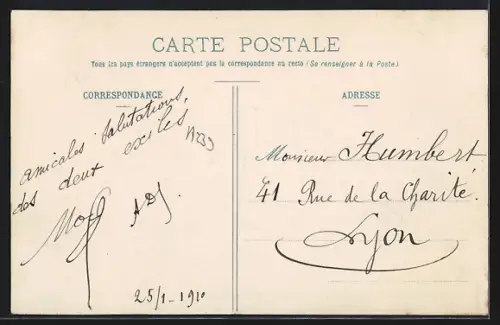 CARTE POSTALE
Tous les pays étrangers n'acceptent pas la correspondance au recto (Se renseigner à la Poste)
CORRESPONDANCE
amicales salutations,
des deux exilés
25/1-1910
ADRESSE
Monsieur Humbert
41 Rue de la Charité.
Lyon